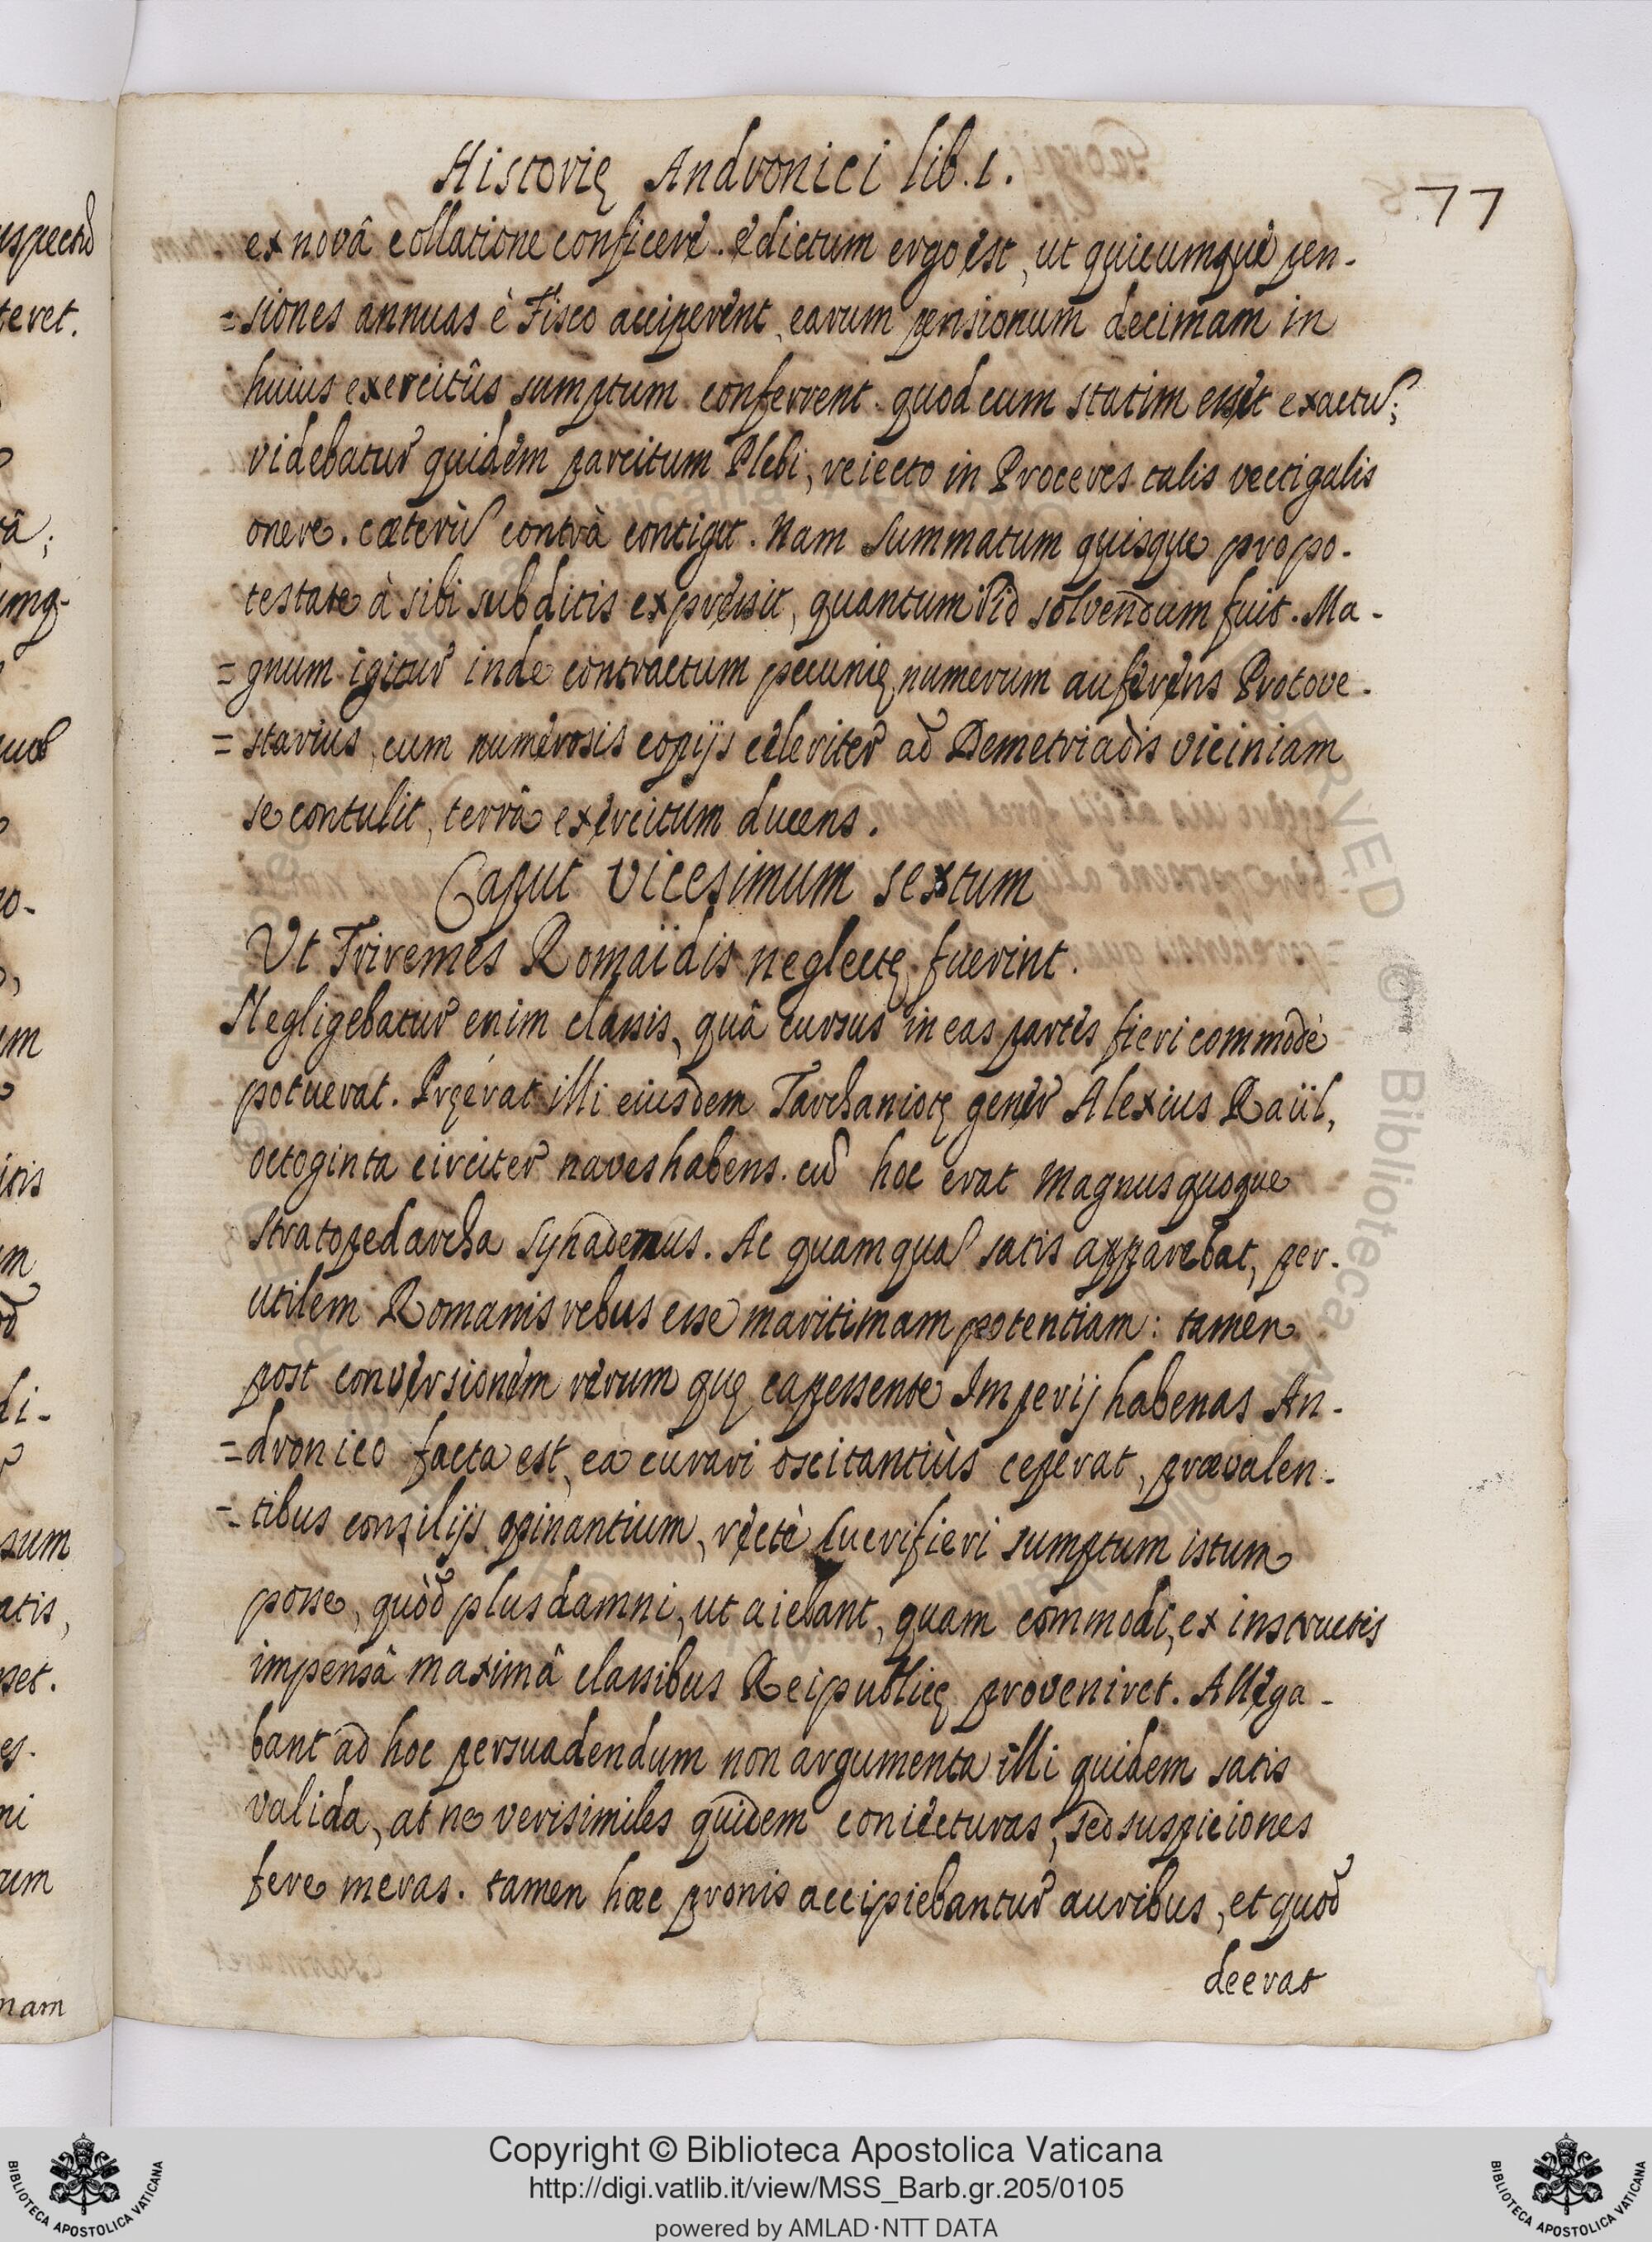 Historię Andronici lib. 1.
77
ex novâ collatione conficere. edictum ergo est, ut quicumque pen-
=siones annuas è Fisco acciperent, earum pensionum decimam in
huius exercitûs sumptum conferrent. quod cum statim esset exactũ;
videbatur quidem parcitum Plebi, reiecto in Proceres talis vectigalis
onere. cæterũ contrà contigit. Nam summatum quisque pro po-
testate à sibi subditis expressit, quantum solvendum fuit. Ma-
=gnum igitur inde contractum pecunię numerum auferens Protove-
=starius, cum numerosis copijs celeriter ad Demetriadis viciniam
se contulit, terrâ exercitum ducens.
Caput vicesimum sextum
Ut Triremes Romaïdis neglectę fuerint.
Negligebatur enim classis, quâ cursus in eas partes fieri commodè
potuerat. Pręerat illi eiusdem Tarchaniotę gener Alexius Raül,
octoginta circiter naves habens. cũ hoc erat magnus quoque
stratopedarcha Synademus. Ac quamquã satis apparebat, per-
utilem Romanis rebus esse maritimam potentiam: tamen
post conversionem rerum quę capessente Imperij habenas An-
=dronico facta est, ea curari oscitantiùs ceperat, prævalen-
=tibus consilijs opinantium, rectè lucrifieri sumptum istum
posse, quòd plus damni, ut aiebant, quam commodi, ex instructis
impensâ maximâ classibus Reipublicę proveniret. Allega-
bant ad hoc persuadendum non argumenta illi quidem satis
valida, at ne verisimiles quidem coniecturas, sed suspiciones
fere meras. tamen hæc pronis accipiebantur auribus, et quod
deerat
Copyright © Biblioteca Apostolica Vaticana
http://digi.vatlib.it/view/MSS_Barb.gr.205/0105
powered by AMLAD·NTT DATA
BIBLIOTECA APOSTOLICA VATICANA
BIBLIOTECA APOSTOLICA VATICANA